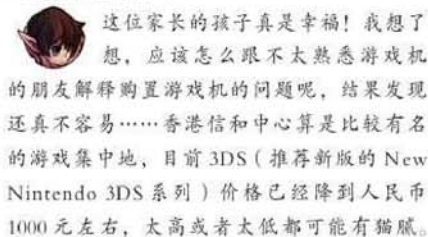 这位家长的孩子真是幸福！我想了
想，应该怎么跟不太熟悉游戏机
的朋友解释购置游戏机的问题呢，结果发现
还真不容易……香港信和中心算是比较有名
的游戏集中地，目前 3DS（推荐新版的 New
Nintendo 3DS 系列）价格已经降到人民币
1000 元左右，太高或者太低都可能有猫腻。